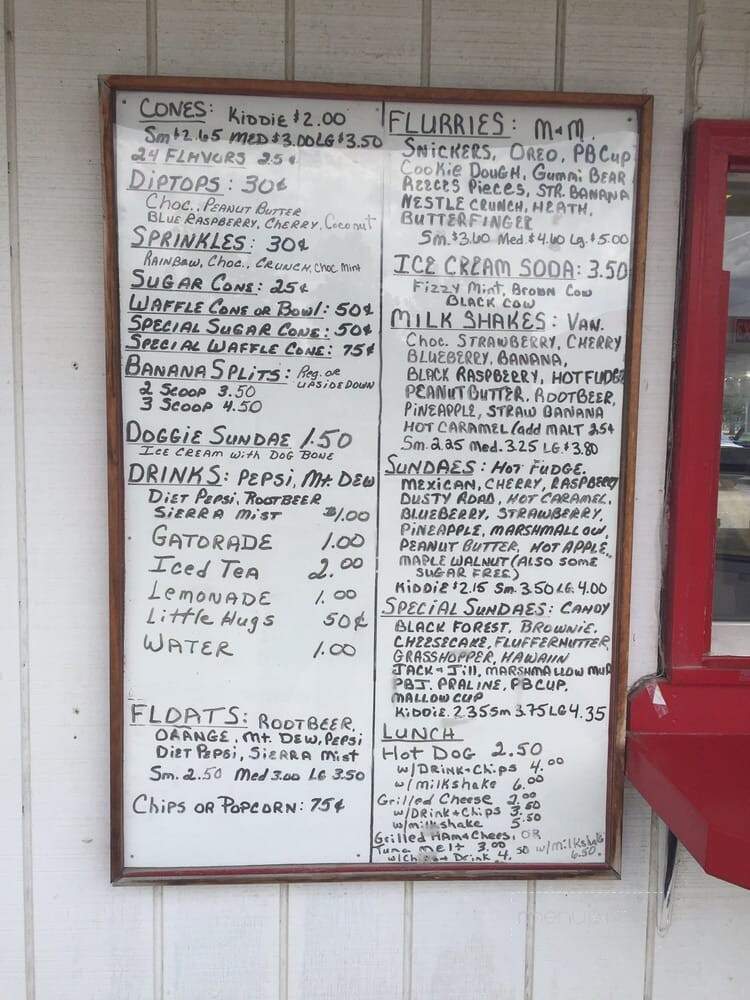 CONES: KiDDiE $2.00
Sm $2.65 MED $3.00 LG $3.50
24 FLAVORS 25¢
DIPTOPS: 30¢
CHOC., PEANUT BUTTER
BLUE RASPBERRY, CHERRY, Coconut
SPRINKLES: 30¢
RAINBOW, CHOC., CRUNCH, CHOC MINT
SUGAR CONE: 25¢
WAFFLE CONE OR BOWl: 50¢
SPECIAL SUGAR CONE: 50¢
SPECIAL WAFFLE CONE: 75¢
BANANA SPLITS: Reg. OR UPSIDE DOWN
2 SCOOP 3.50
3 SCOOP 4.50
DOGGIE SUNDAE 1.50
ICE CREAM WITH DOG BONE
DRINKS: PEPSI, Mt. DEW
DIET PEPSI, ROOTBEER
SIERRA MIST $1.00
GATORADE 1.00
Iced TEA 2.00
LEMONADE 1.00
Little Hugs 50¢
WATER 1.00
FLOATS: ROOTBEER,
ORANGE, Mt. DEW, PEPSI
DIET PEPSI, SIERRA MIST
Sm. 2.50 Med 3.00 LG 3.50
CHIPS OR POPCORN: 75¢
FLURRIES: M+M.
SNICKERS, OREO, PB CUP
COOKIE DOUGH, GUMMI BEAR
REECES PIECES, STR. BANANA
NESTLE CRUNCH, HEATH,
BUTTERFINGER
Sm. $3.60 Med. $4.60 Lg. $5.00
ICE CREAM SODA: 3.50
FIZZY MINT, BROWN COW
BLACK COW
MILK SHAKES: VAN.
CHOC. STRAWBERRY, CHERRY
BLUEBERRY, BANANA,
BLACK RASPBERRY, HOT FUDGE
PEANUT BUTTER, ROOTBEER,
PINEAPPLE, STRAW BANANA
HOT CARAMEL (add MALT 25¢
Sm. 2.25 Med. 3.25 LG. $3.80
SUNDAES: HOT FUDGE.
MEXICAN, CHERRY, RASPBERRY
DUSTY ROAD, HOT CARAMEL,
BLUEBERRY, STRAWBERRY,
PINEAPPLE, MARSHMALLOW,
PEANUT BUTTER, HOT APPLE,
MAPLE WALNUT (ALSO SOME
SUGAR FREE)
KIDDIE $2.15 Sm. 3.50 LG. 4.00
SPECIAL SUNDAES: CANDY
BLACK FOREST, BROWNIE,
CHEESECAKE, FLUFFERNUTTER,
GRASSHOPPER, HAWAIIN
JACK + Jill, MARSHMALLOW MUD
PBJ, PRALINE, PBCUP,
MALLOW CUP
KIDDIE. 2.35 Sm 3.75 LG 4.35
LUNCH
HOT DOG 2.50
W/DRINK+Chips 4.00
w/milkshake 6.00
Grilled Cheese
w/DRINK+CHIPS
w/milkshake 5.50
Grilled HAM+Chees, OR
Tuna melt 3.00
w/Chips+ Drink 4.50 w/milkshake 6.50